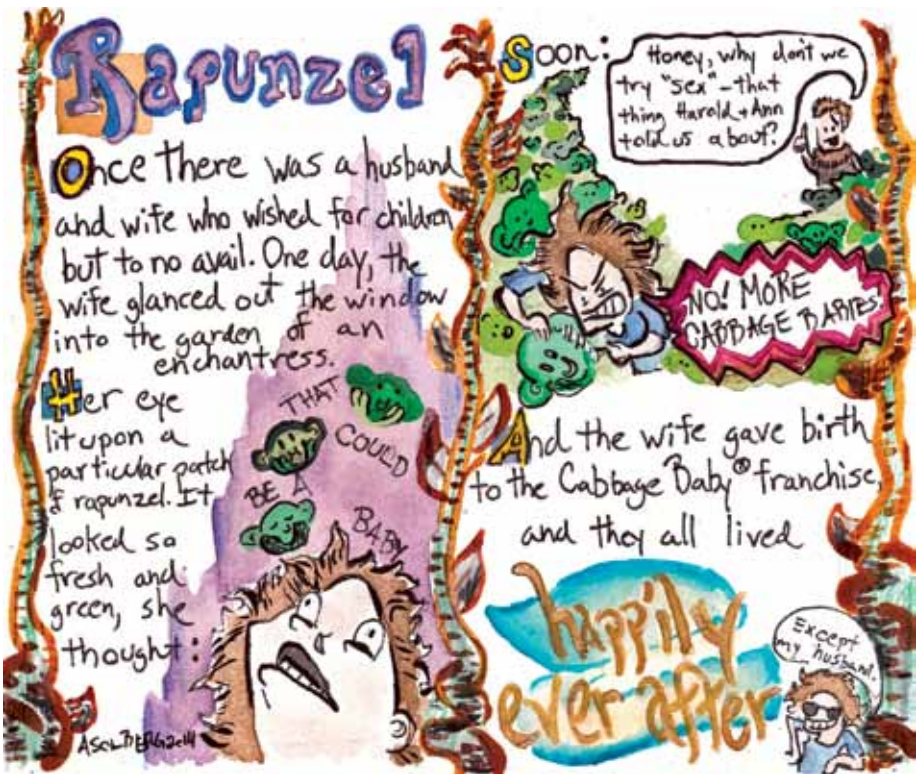 Rapunzel
Once there was a husband
and wife who wished for children
but to no avail. One day, the
wife glanced out the window
into the garden of an
enchantress.
Her eye
lit upon a
particular patch
of rapunzel. It
looked so
fresh and
green, she
thought:
THAT
COULD
BE A
BABY
Soon:
Honey, why don't we
try "sex" - that
thing Harold + Ann
told us about?
NO! MORE
CABBAGE BABIES!
And the wife gave birth
to the Cabbage Baby® franchise,
and they all lived
happily
ever after
Except
my husband.